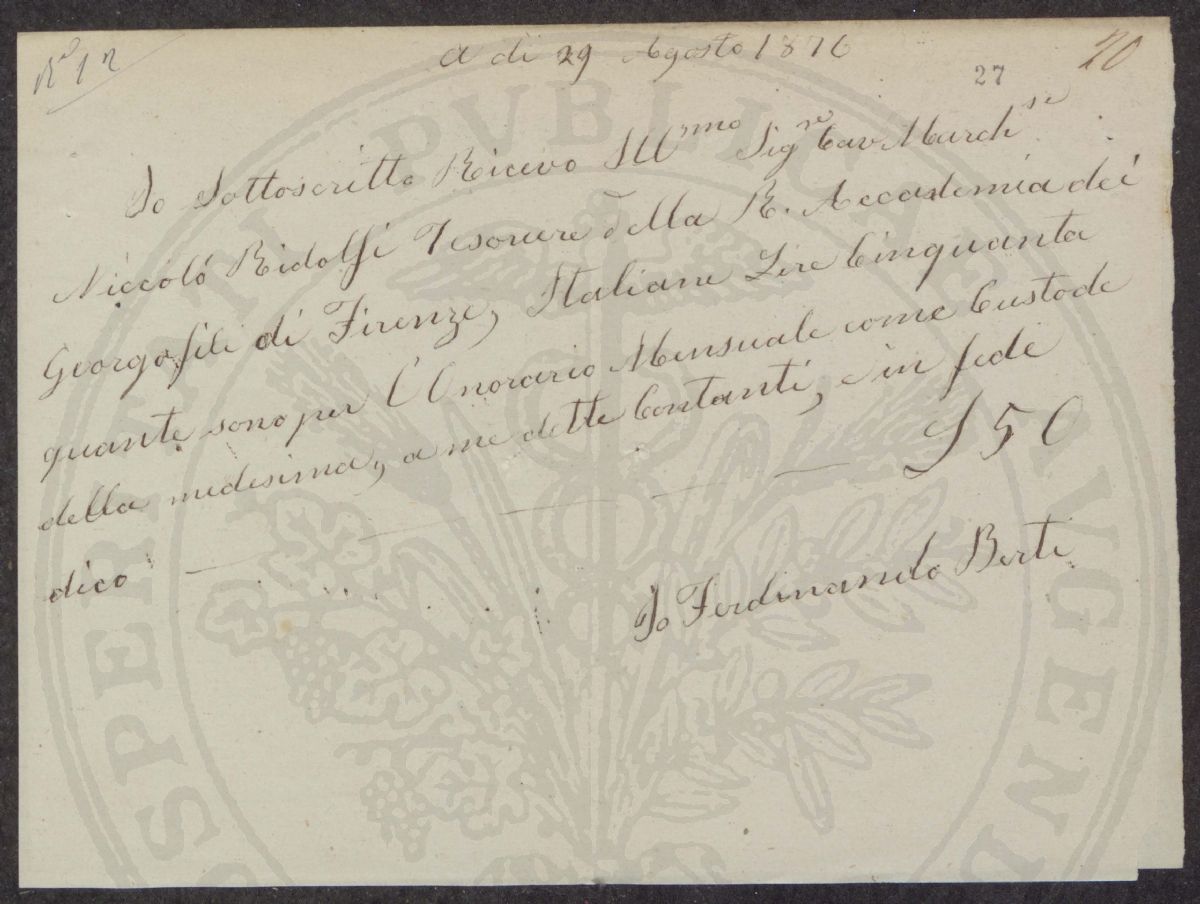 N.º 12
A di 29 Agosto 1876
27
20
Io Sottoscritto Ricevo Ill.mo Sig.re Cav. March.se
Niccoló Ridolfi Tesoriere della R. Accademia dei
Georgofili di Firenze, Italiane Lire Cinquanta
quante sono per l'Onorario Mensuale come Custode
della medesima, a me dette Contanti, e in fede
dico £ 50
Io Ferdinando Berti
PROSPERITATI PUBLICAE AUGENDAE